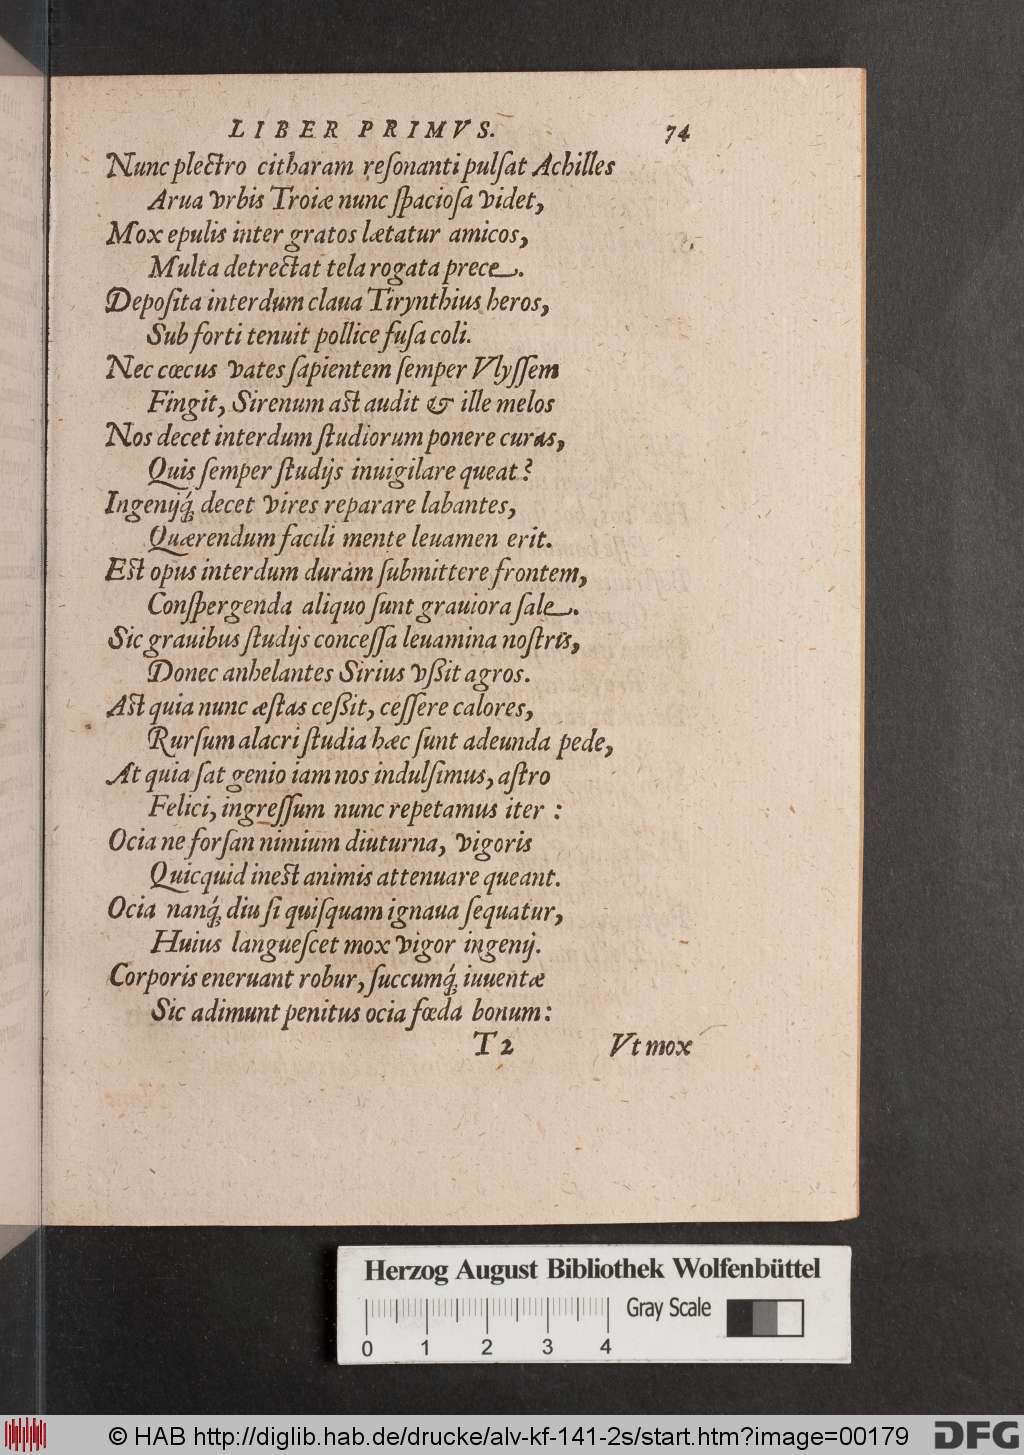 LIBER PRIMVS. 74
Nunc plectro citharam reſonanti pulſat Achilles
Arua vrbis Troiæ nunc ſpacioſa videt,
Mox epulis inter gratos lætatur amicos,
Multa detrectat tela rogata prece.
Depoſita interdum claua Tirynthius heros,
Sub forti tenuit pollice fuſa coli.
Nec cœcus vates ſapientem ſemper Vlyſſem
Fingit, Sirenum aſt audit & ille melos
Nos decet interdum ſtudiorum ponere curas,
Quis ſemper ſtudijs inuigilare queat?
Ingenijq́; decet vires reparare labantes,
Quærendum facili mente leuamen erit.
Eſt opus interdum duram ſubmittere frontem,
Conſpergenda aliquo ſunt grauiora ſale.
Sic grauibus ſtudijs conceſſa leuamina noſtris,
Donec anhelantes Sirius vßit agros.
Aſt quia nunc æſtas ceßit, ceſſere calores,
Rurſum alacri ſtudia hæc ſunt adeunda pede,
At quia ſat genio iam nos indulſimus, aſtro
Felici, ingreſſum nunc repetamus iter:
Ocia ne forſan nimium diuturna, vigoris
Quicquid ineſt animis attenuare queant.
Ocia nanq́; diu ſi quiſquam ignaua ſequatur,
Huius langueſcet mox vigor ingenij.
Corporis eneruant robur, ſuccumq́; iuuentæ
Sic adimunt penitus ocia fœda bonum:
T 2 Vt mox
Herzog August Bibliothek Wolfenbüttel
Gray Scale
0 1 2 3 4
© HAB http://diglib.hab.de/drucke/alv-kf-141-2s/start.htm?image=00179
DFG